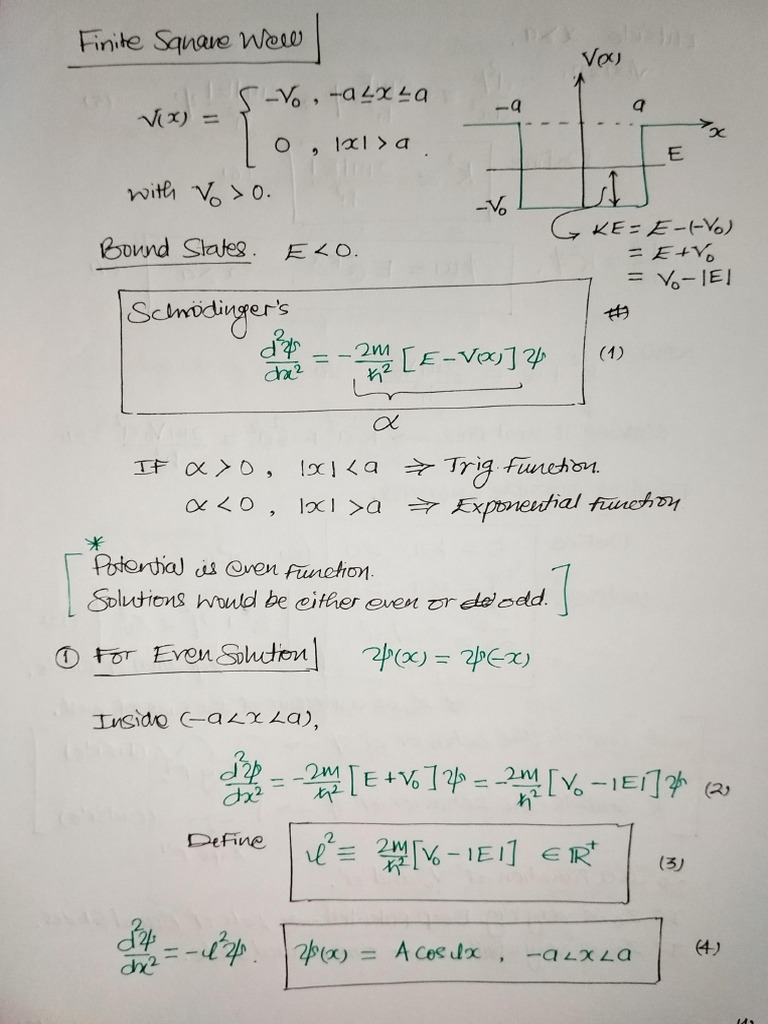 Finite Square Well
V(x) = { -V₀ , -a≤x≤a
0 , |x| > a .
with V₀ > 0.
V(x)
-a a
x
E
-V₀
KE = E-(-V₀)
= E+V₀
= V₀-|E|
Bound States. E < 0.
Schrödinger's
d²ψ/dx² = -2m/ħ² [E-V(x)] ψ (1)
α
If α > 0 , |x| < a ⇒ Trig. Function.
α < 0 , |x| > a ⇒ Exponential function
*
[Potential is even function.
Solutions would be either even or odd.]
① For Even Solution ψ(x) = ψ(-x)
Inside (-a<x<a),
d²ψ/dx² = -2m/ħ² [E+V₀] ψ = -2m/ħ² [V₀-|E|] ψ (2)
Define l² ≡ 2m/ħ² [V₀-|E|] ∈ ℝ⁺ (3)
d²ψ/dx² = -l²ψ. ψ(x) = A cos lx , -a<x<a (4)